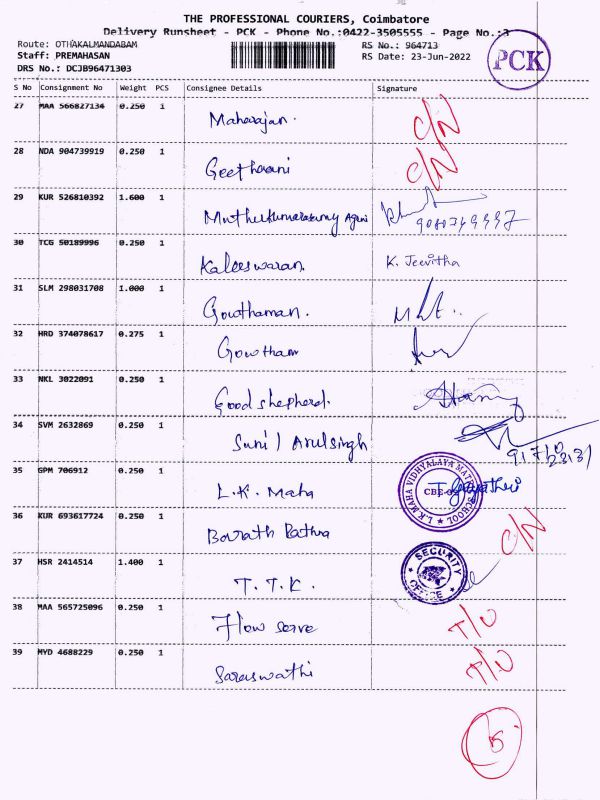 THE PROFESSIONAL COURIERS, Coimbatore
Delivery Runsheet - PCK - Phone No.:0422-3505555 - Page No.:3
Route: OTHAKALMANDABAM
RS No.: 964713
Staff: PREMAHASAN
RS Date: 23-Jun-2022
DRS No.: DCJB96471303
PCK
S No Consignment No Weight PCS Consignee Details Signature
27 MAA 566827134 0.250 1 Maharajan. C/N
28 NDA 904739919 0.250 1 Geetharani C/N
29 KUR 526810392 1.600 1 Muthukumarasamy Agni
30 TCG 50189996 0.250 1 Kaleeswaran. K. Jeevitha
31 SLM 298031708 1.000 1 Gowthaman.
32 HRD 374078617 0.275 1 Gowtham
33 NKL 3022091 0.250 1 Good shepherd.
34 SVM 2632869 0.250 1 Sunil Arulsingh
35 GPM 706912 0.250 1 L.K. Maha L.K. MAHA VIDHYALAYA MATRIC SCHOOL T. Gayatheri
36 KUR 693617724 0.250 1 Barath Rathna C/N
37 HSR 2414514 1.400 1 T. T. K. SECURITY OFFICE
38 MAA 565725096 0.250 1 Flow serve
39 MYD 4688229 0.250 1 Saraswathi